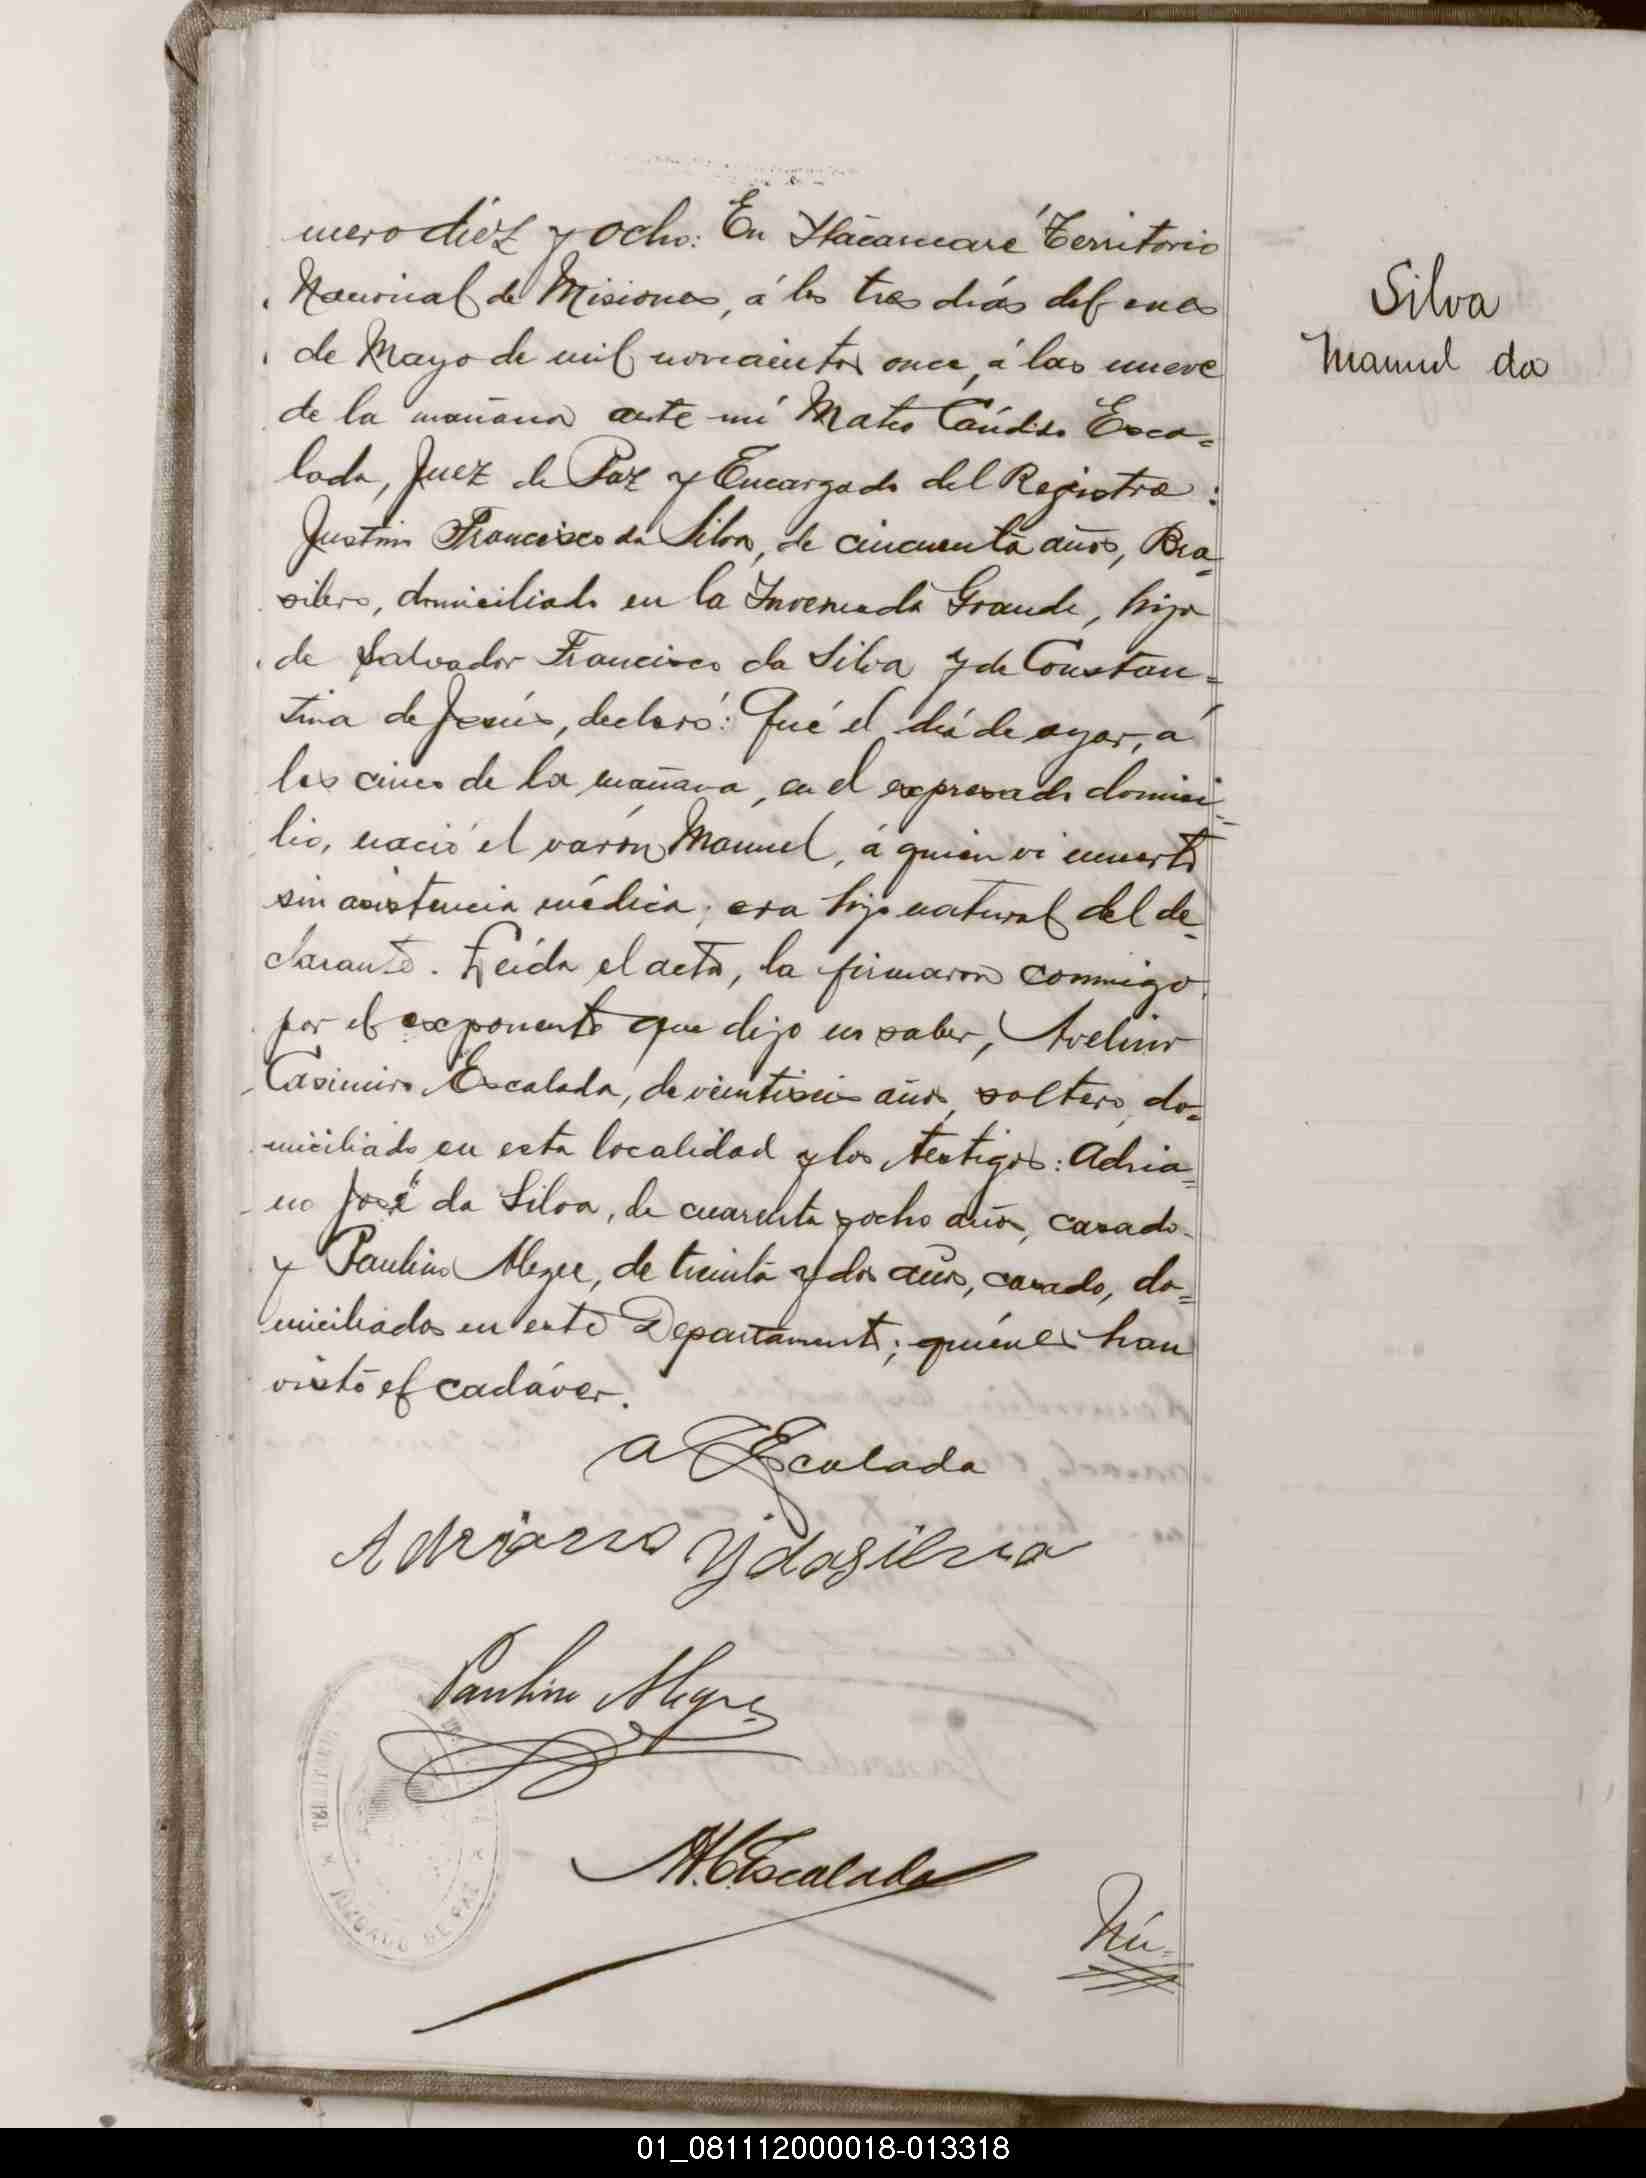 mero diéz y ocho: En Itacaruaré Territorio
Nacional de Misiones, á los tres diás del mes
de Mayo de mil novecientos once, á las nueve
de la mañana ante mí Mateo Cándido Esca=
lada, Juez de Paz y Encargado del Registro:
Justino Francisco da Silva, de cincuenta años, Bra=
silero, domiciliado en la Invernada Grande, hijo
de Salvador Francisco da Silva y de Constan=
tina de Jesús, declaró: Qué el diá de ayer, á
las cinco de la mañana, en el expresado domici=
lio, nació el varón Manuel, á quien vi muerto
sin asistencia médica; era hijo natural del de=
clarante. Leída el acta, la firmaron conmigo
por el exponente que dijo no saber, Avelino
Casimiro Escalada, de veintiseis años, soltero, do=
miciliado en esta localidad y los testigos: Adria=
no José da Silva, de cuarenta y ocho años, casado
y Paulino Alegre, de treinta y dos años, casado, do=
miciliados en este Departamento; quiénes han
visto el cadáver.
A C Escalada
Adriano J da Silva
Paulino Alegre
M. C. Escalada
Nú=
Silva
Manuel da
JUZGADO DE PAZ
01_081112000018-013318